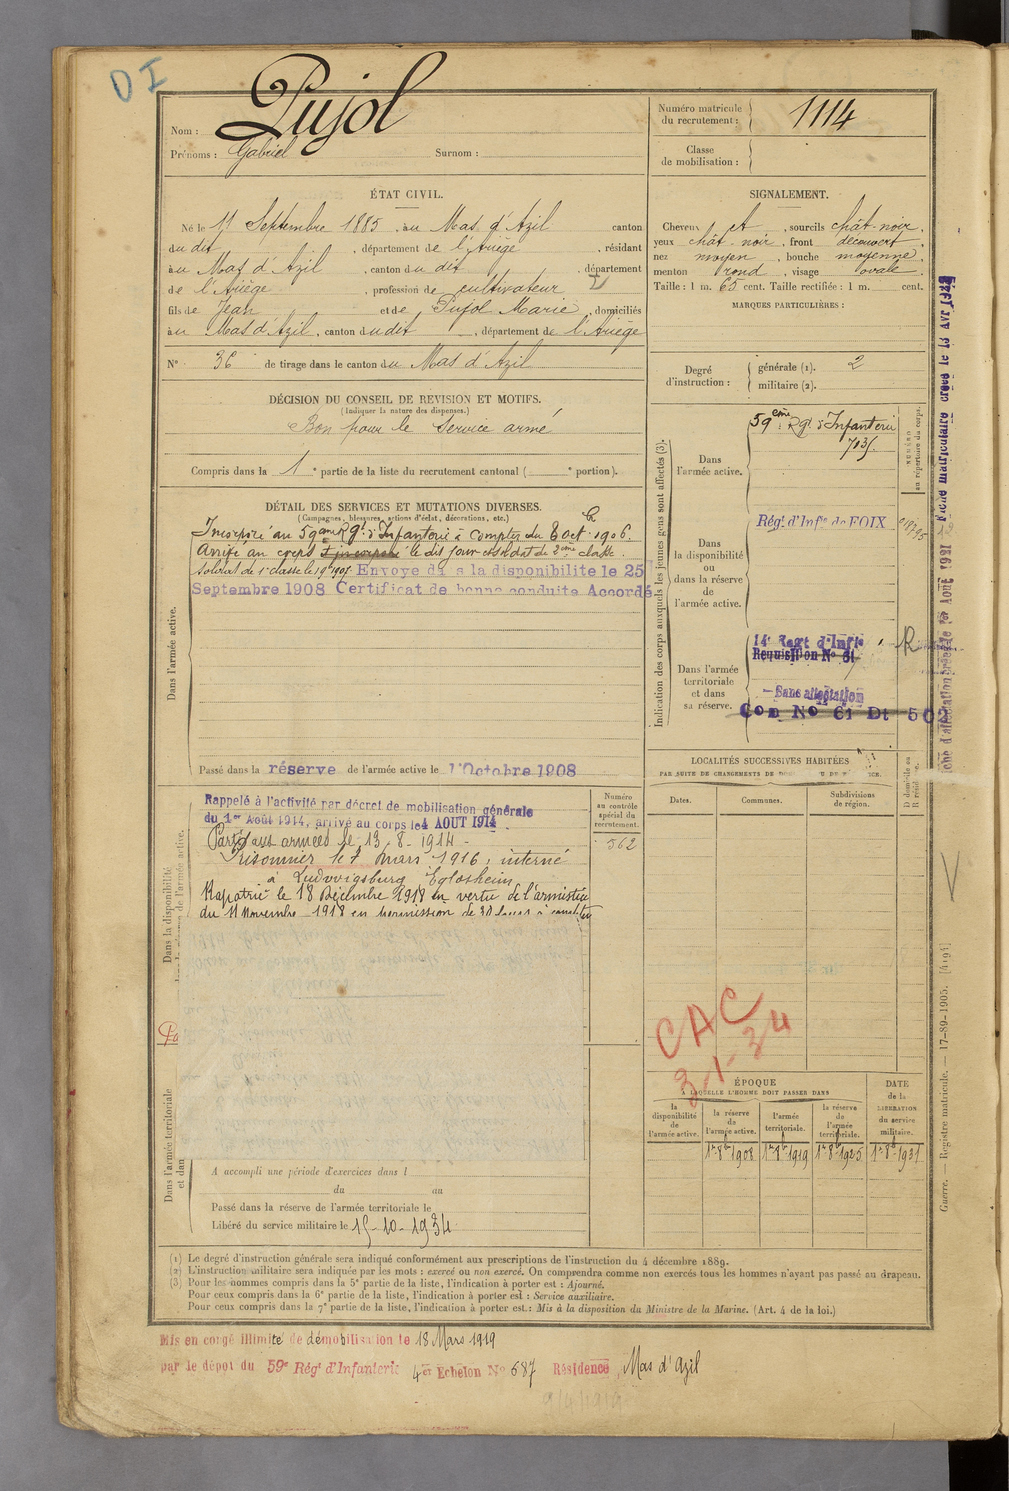 D I
Nom : Pujol
Prénoms : Gabriel Surnom :
Numéro matricule
du recrutement : 1114
Classe
de mobilisation :
ÉTAT CIVIL.
Né le 11 Septembre 1885, au Mas d'Azil canton
du dit, département de l'Ariège, résidant
au Mas d'Azil, canton du dit, département
de l'Ariège, profession de cultivateur
fils de Jean et de Pujol Marie, domiciliés
au Mas d'Azil, canton du dit, département de l'Ariège
N° 36 de tirage dans le canton du Mas d'Azil
SIGNALEMENT.
Cheveux et, sourcils chât-noir,
yeux chât-noir, front découvert,
nez moyen, bouche moyenne,
menton rond, visage ovale.
Taille : 1 m. 65 cent. Taille rectifiée : 1 m. cent.
MARQUES PARTICULIÈRES :
Degré
d'instruction :
générale (1). 2
militaire (2).
DÉCISION DU CONSEIL DE REVISION ET MOTIFS.
(Indiquer la nature des dispenses.)
Bon pour le Service armé
Compris dans la 1e partie de la liste du recrutement cantonal ( e portion).
DÉTAIL DES SERVICES ET MUTATIONS DIVERSES.
(Campagnes, blessures, actions d'éclat, décorations, etc.)
Dans l'armée active.
Incorporé au 59ème Rgt d'Infanterie à compter du 8 oct 1906.
Arrivé au corps et incorporé le dit jour soldat de 2ème classe.
Soldat de 1e classe le 1907. Envoyé da s la disponibilité le 25
Septembre 1908 Certificat de bonne conduite Accordé
Passé dans la réserve de l'armée active le 1'Octobre 1908
Indication des corps auxquels les jeunes gens sont affectés (3).
Dans
l'armée active.
59eme Rgt d'Infanterie
7035.
NUMÉRO
au répertoire du corps.
Dans
la disponibilité
ou
dans la réserve
de
l'armée active.
Régt d'Infie de FOIX
Dans l'armée
territoriale
et dans
sa réserve.
14e Regt d'Infie
Requisition No 61
Sans affectation
Com No 61 Dt 502
R
LOCALITÉS SUCCESSIVES HABITÉES
PAR SUITE DE CHANGEMENTS DE
Dates.
Communes.
Subdivisions
de région.
D domicile ou
R résidence.
Dans la disponibilité
de l'armée active.
Numéro
au contrôle
spécial du
recrutement.
562
Rappelé à l'activité par décret de mobilisation générale
du 1er Août 1914, arrivé au corps le 4 AOUT 1914
Parti aux armées le 13.8.1914 -
Prisonnier le 7 mars 1916, interné
à Ludwigsburg Eglosheim
Rapatrié le 18 Décembre 1918 en vertu de l'armistice
du 11 Novembre 1918 en permission de 30 jours
CAC
3-1-34
ÉPOQUE
À LAQUELLE L'HOMME DOIT PASSER DANS
DATE
de la
LIBÉRATION
du service
militaire.
la
disponibilité
de
l'armée active.
la réserve
de
l'armée active.
l'armée
territoriale.
la réserve
de
l'armée
territoriale.
1er 8b 1908
1er 8b 1919
1er 8b 1925
1er 8b 1931
Dans l'armée territoriale
A accompli une période d'exercices dans l
du au
Passé dans la réserve de l'armée territoriale le
Libéré du service militaire le 15-10-1934
(1) Le degré d'instruction générale sera indiqué conformément aux prescriptions de l'instruction du 4 décembre 1889.
(2) L'instruction militaire sera indiquée par les mots : exercé ou non exercé. On comprendra comme non exercés tous les hommes n'ayant pas passé au drapeau.
(3) Pour les hommes compris dans la 5e partie de la liste, l'indication à porter est : Ajourné.
Pour ceux compris dans la 6e partie de la liste, l'indication à porter est : Service auxiliaire.
Pour ceux compris dans la 7e partie de la liste, l'indication à porter est : Mis à la disposition du Ministre de la Marine. (Art. 4 de la loi.)
Mis en congé illimité de démobilisation le 18 Mars 1919
par le dépôt du 59e Régt d'Infanterie 4e Echelon No 687 Résidence, Mas d'Azil
Guerre. — Registre matricule. — 17-89-1905. [4194]